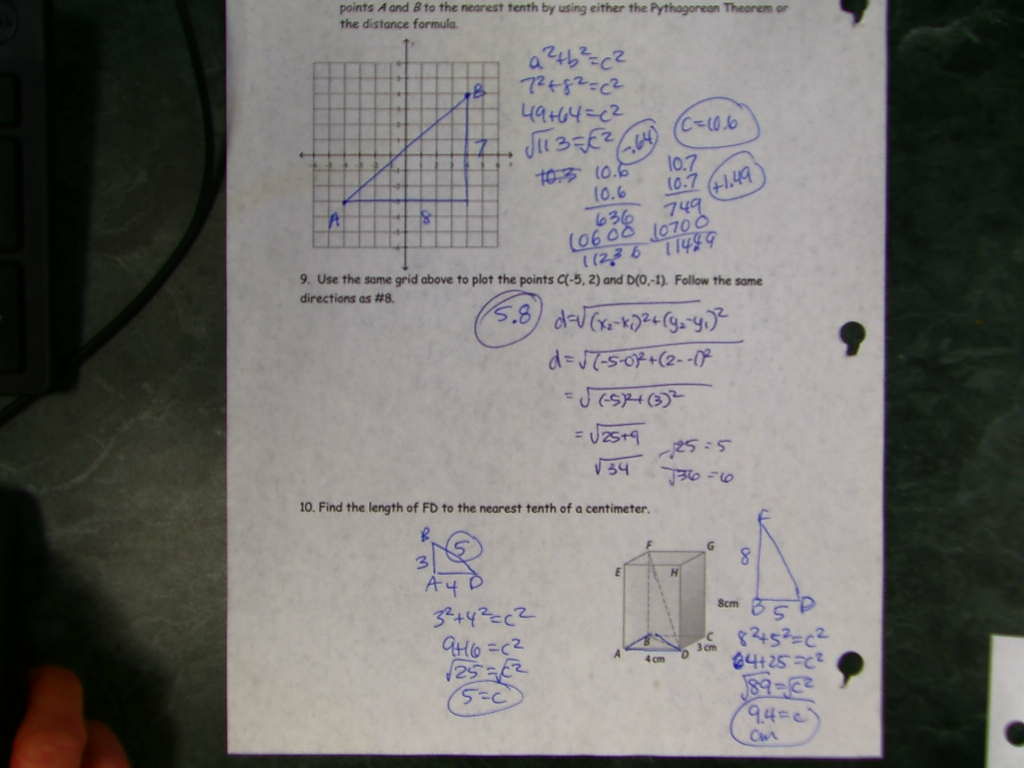 points A and B to the nearest tenth by using either the Pythagorean Theorem or
the distance formula.
a²+b²=c²
7²+8²=c²
49+64=c²
√113=√c²
-.64
C=10.6
B
7
A
8
10.3
10.6
10.6
636
10600
11236
10.7
10.7
749
10700
11449
+1.49
9. Use the same grid above to plot the points C(-5, 2) and D(0,-1). Follow the same
directions as #8.
5.8
d=√(x₂-x₁)²+(y₂-y₁)²
d=√(-5-0)²+(2--1)²
=√(-5)²+(3)²
=√25+9
√34
√25=5
√36=6
10. Find the length of FD to the nearest tenth of a centimeter.
B
5
3
A 4 D
3²+4²=c²
9+16=c²
√25=√c²
5=c
F
G
E
H
8cm
B
C
3 cm
A
D
4 cm
F
8
B 5 D
8²+5²=c²
64+25=c²
√89=√c²
9.4=c
cm